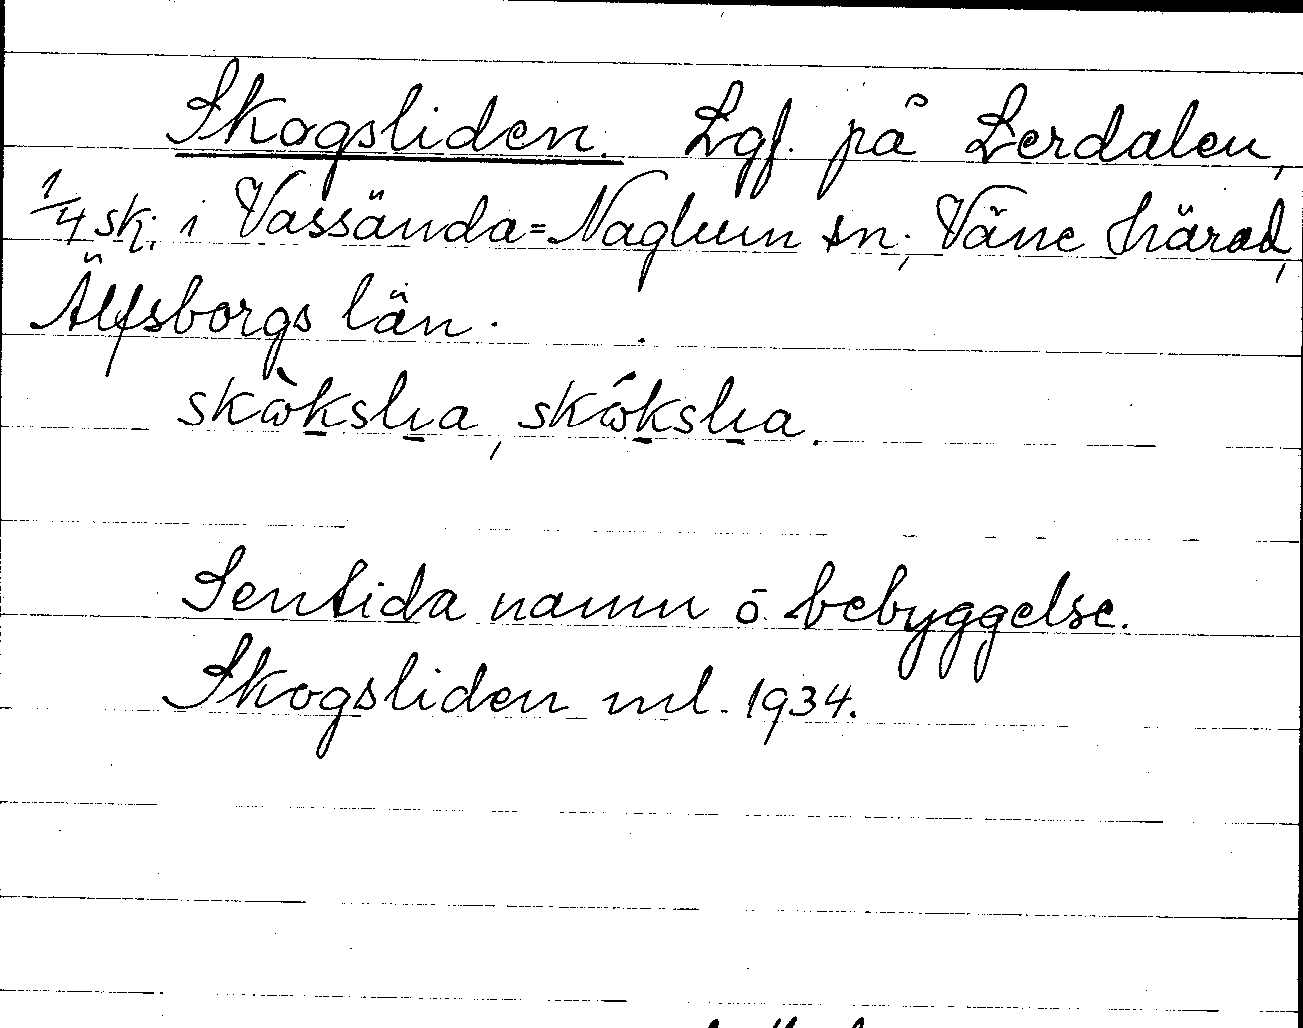 Skogsliden. Lgf. på Lerdalen,
1/4 sk. i Vassända=Naglum sn, Väne härad,
Älfsborgs län.
skὼksli̱a, skώksli̱a.
Sentida namn o. bebyggelse.
Skogsliden ml. 1934.